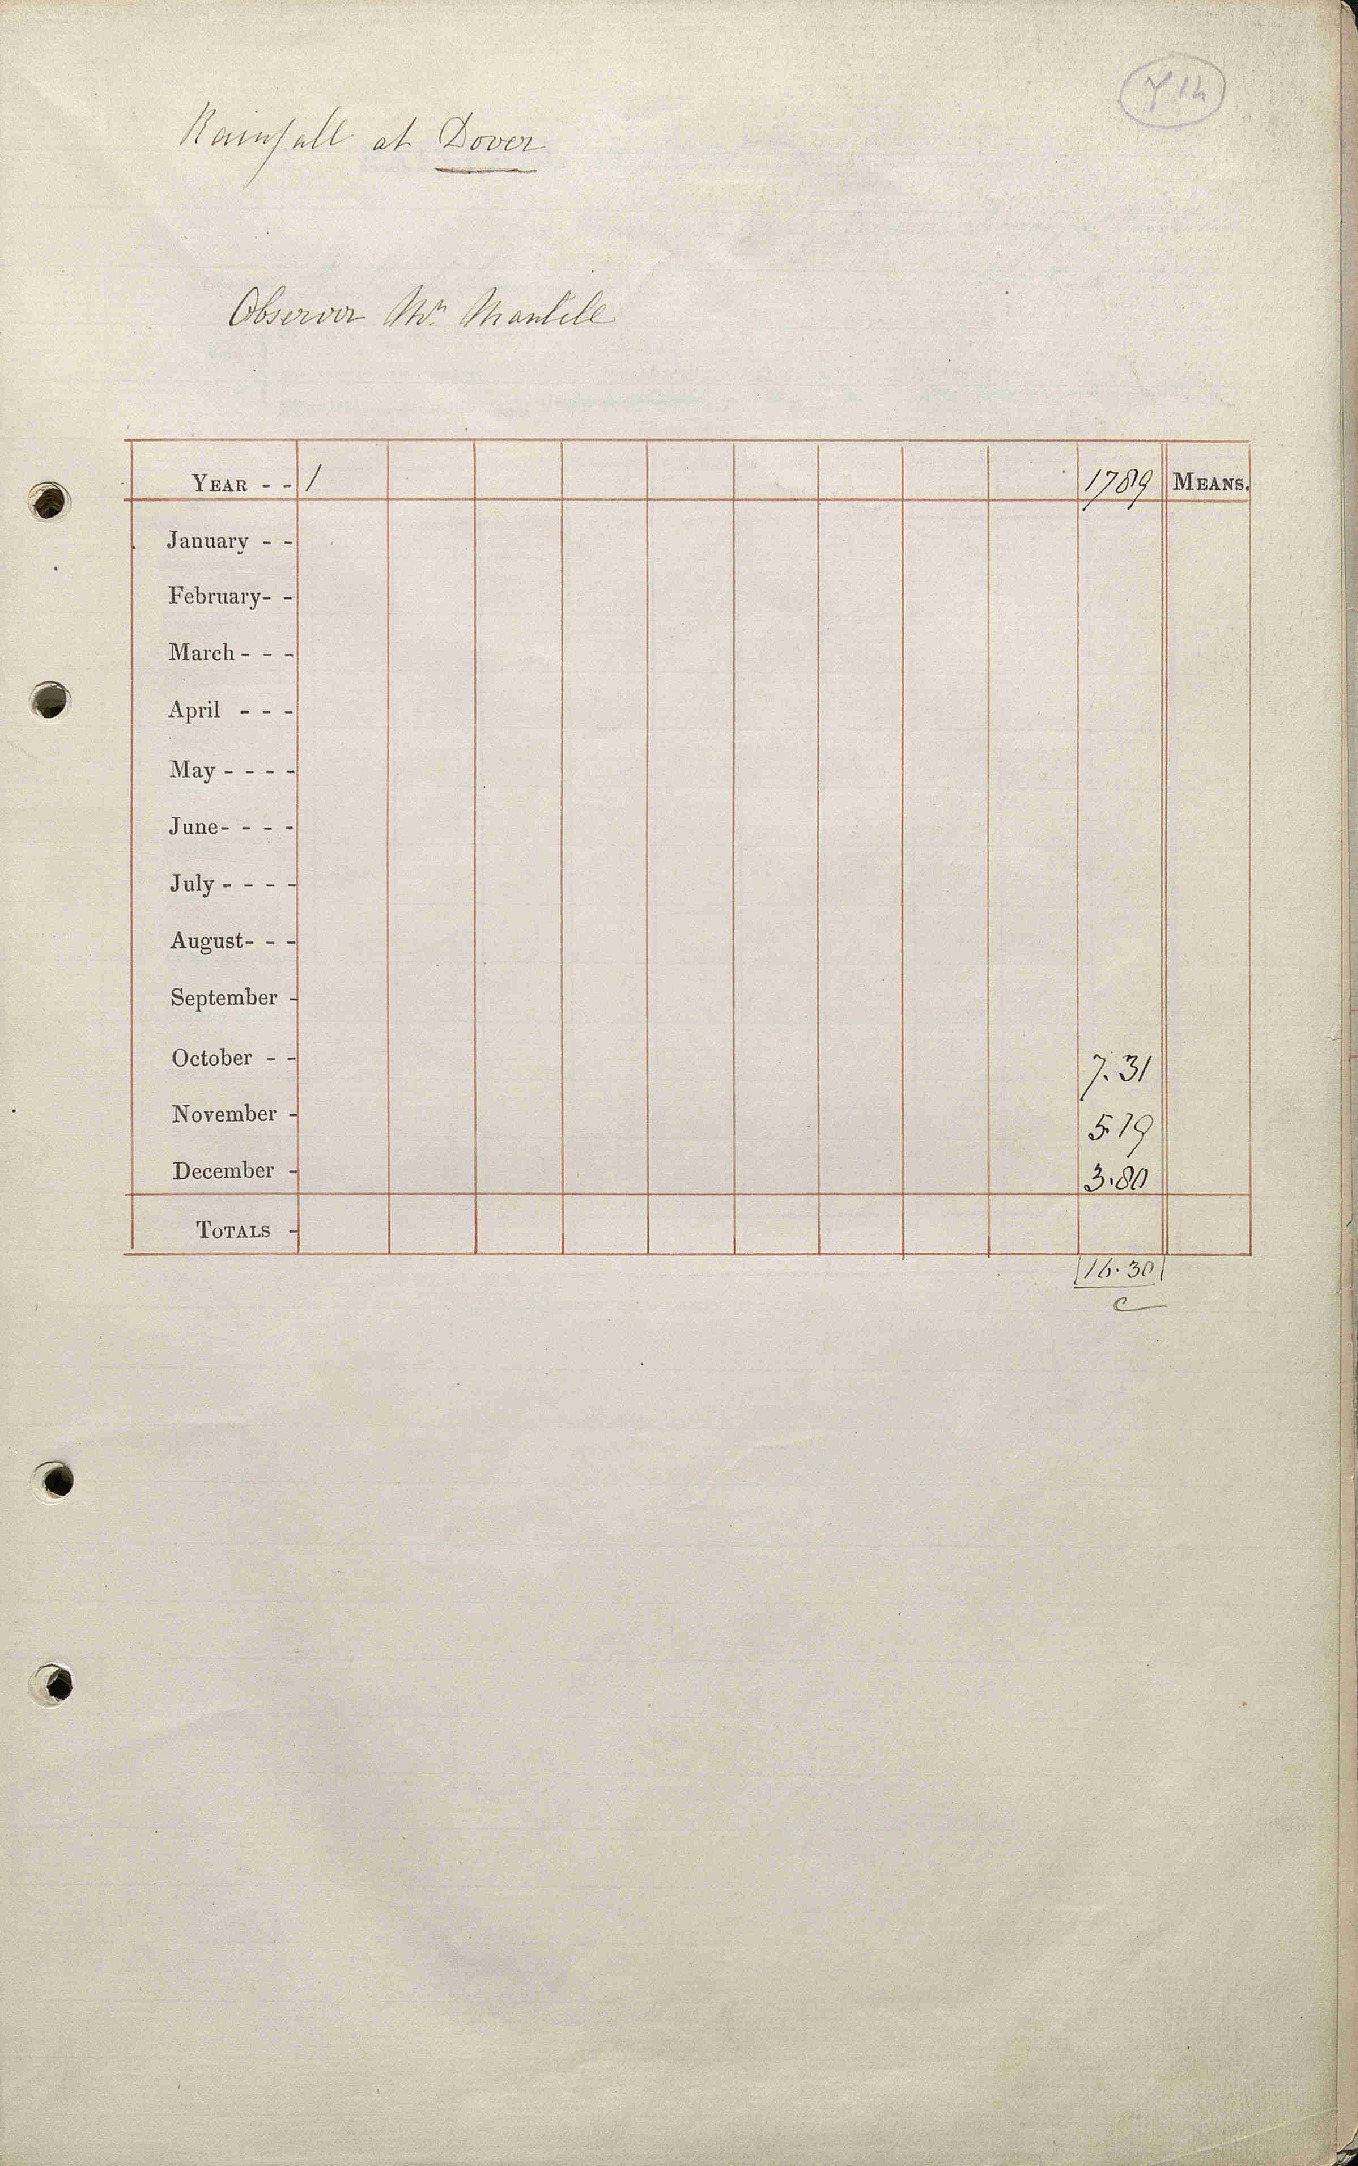 Rainfall at Dover
Observer Mr. Mantell
YEAR - - 1 1789 MEANS.
January - -
February- -
March - - -
April - - -
May - - - -
June- - - -
July - - - -
August- - -
September -
October - - 7.31
November - 5.19
December - 3.80
TOTALS -
16.30
c